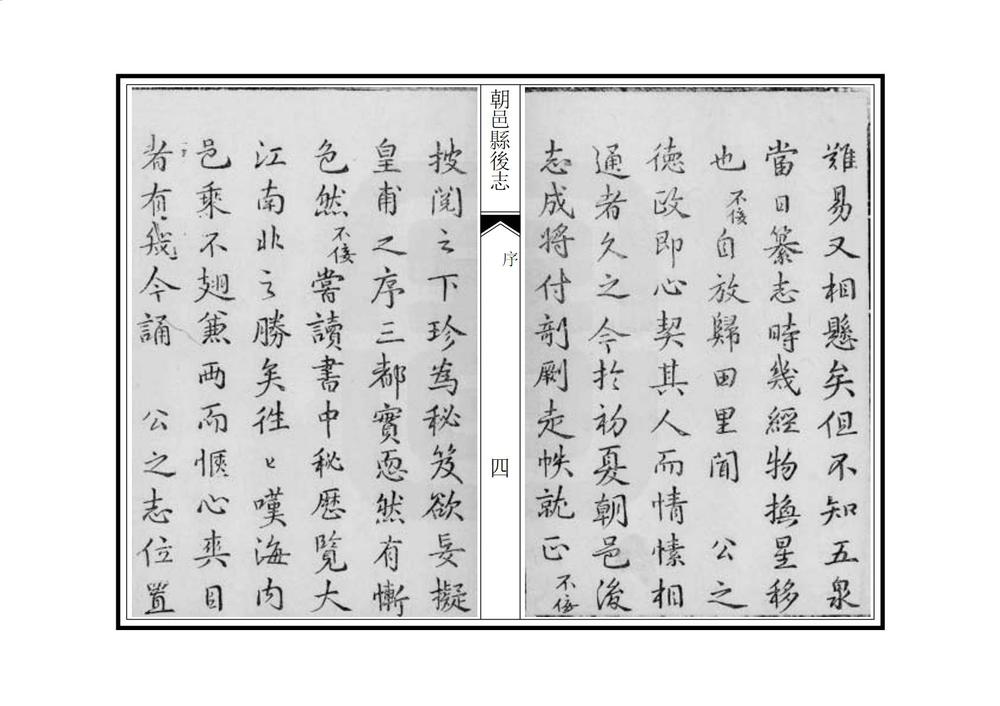 難易又相懸矣但不知五泉
當日纂志時幾經物換星移
也不佞自放歸田里聞　公之
德政即心契其人而情愫相
通者久之今於初夏朝邑後
志成將付剞劂走帙就正不佞
朝邑縣後志
序
四
披閱之下珍為秘笈欲妄擬
皇甫之序三都實恧然有慚
色然不佞嘗讀書中秘歷覽大
江南北之勝矣往々嘆海內
邑乘不翅兼兩而愜心爽目
者有幾今誦　公之志位置